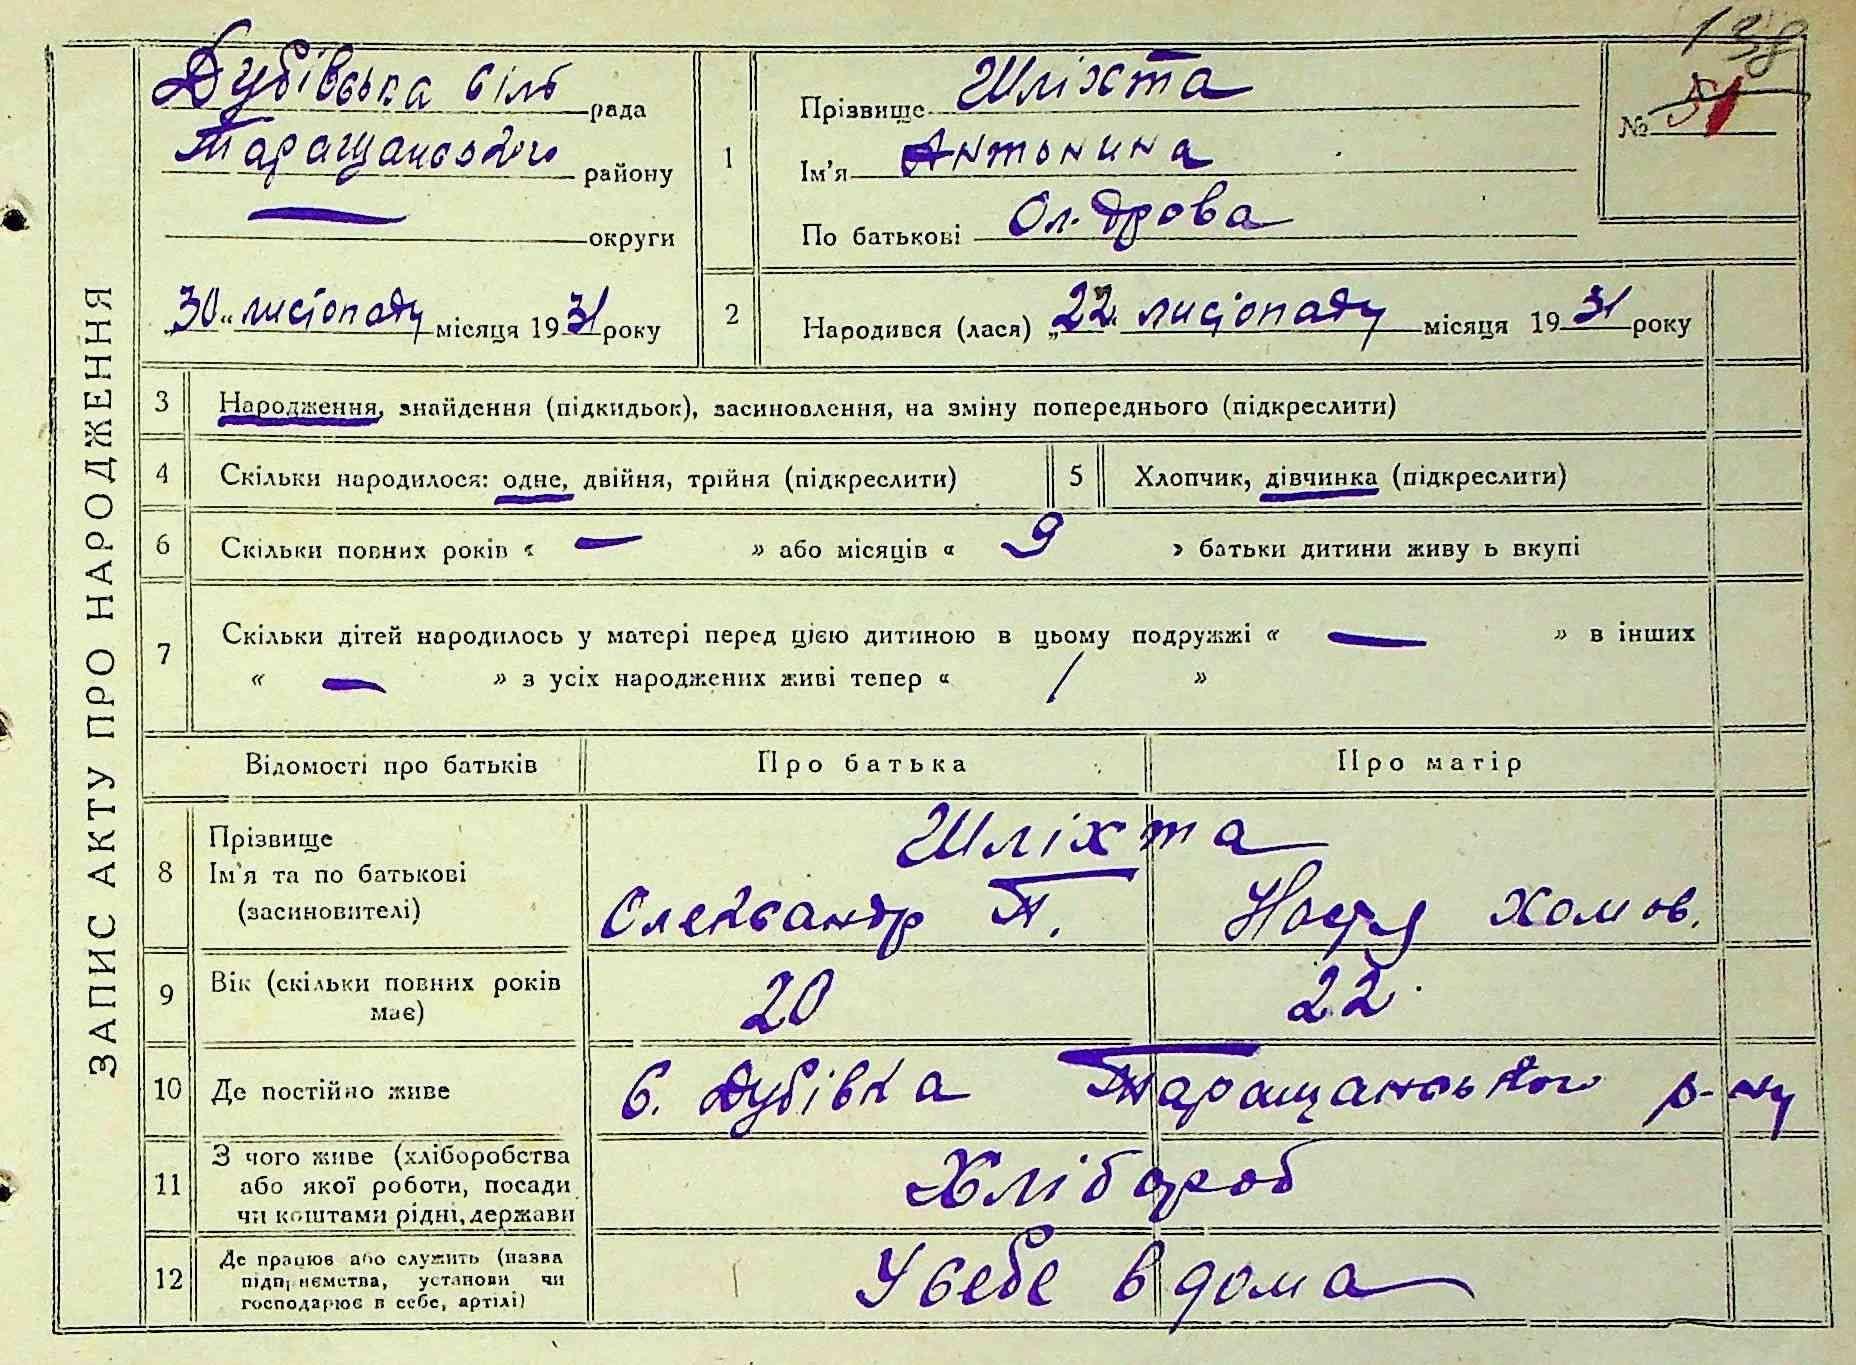 138
ЗАПИС АКТУ ПРО НАРОДЖЕННЯ
Дубівська сільрада
Таращанського району
— округи
30 „ листопаду місяця 1931 року
1
Прізвище Шліхта
Ім'я Антонина
По батькові Ол-дрова
№ 51
2
Народився (лася) „22" листопаду місяця 1931 року
3 Народження, знайдення (підкидьок), засиновлення, на зміну попереднього (підкреслити)
4 Скільки народилося: одне, двійня, трійня (підкреслити)
5 Хлопчик, дівчинка (підкреслити)
6 Скільки повних років « — » або місяців « 9 » батьки дитини живу ь вкупі
7 Скільки дітей народилось у матері перед цією дитиною в цьому подружжі « — » в інших
« — » з усіх народжених живі тепер « 1 »
Відомості про батьків Про батька Про матір
8 Прізвище Шліхта
Ім'я та по батькові
(засиновителі) Олександр Т. Настя Хомов.
9 Вік (скільки повних років
має) 20 22
10 Де постійно живе с. Дубівка Таращанського р-ну
11 З чого живе (хліборобства
або якої роботи, посади
чи коштами рідні, держави Хлібороб
12 Де працює або служить (назва
підприємства, установи чи
господарює в себе, артілі) У себе вдома